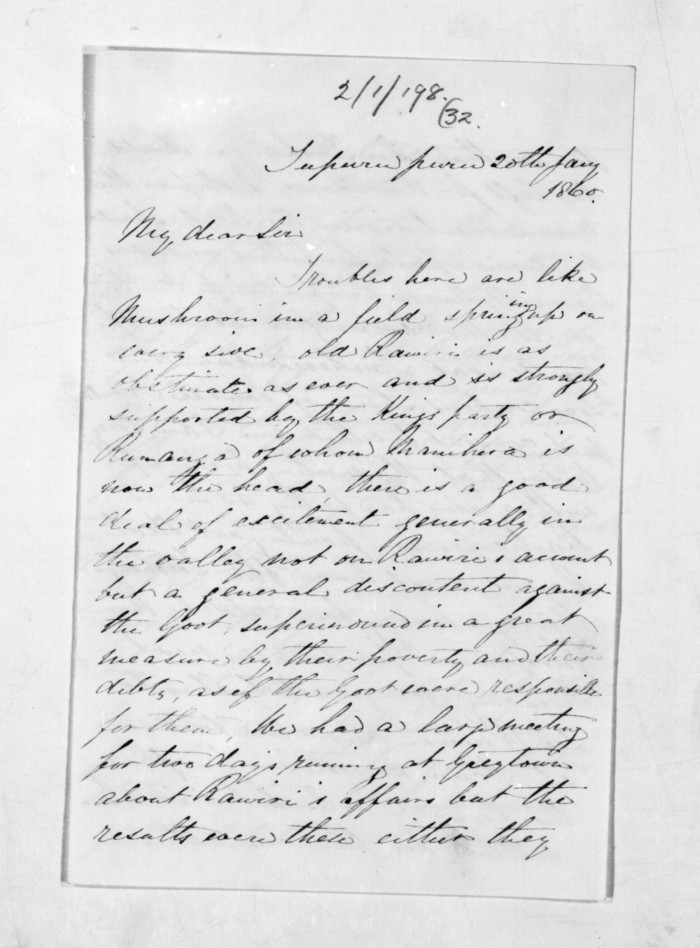 2/1/198.
(32.
Tupurupuru 20th Jany
1860.
My dear Sir
Troubles here are like
Mushrooms in a field springing up on
every side, old Rawiri is as
obstinate as ever and is strongly
supported by the Kings party or
Runanga of whom Manihera is
now the head, there is a good
deal of excitement generally in
the valley not on Rawiri's account
but a general discontent against
the Govt, superinduced in a great
measure by their poverty and their
debts, as if the Govt were responsible
for them, We had a large meeting
for two days running at Greytown
about Rawiri's affairs but the
results were these either they